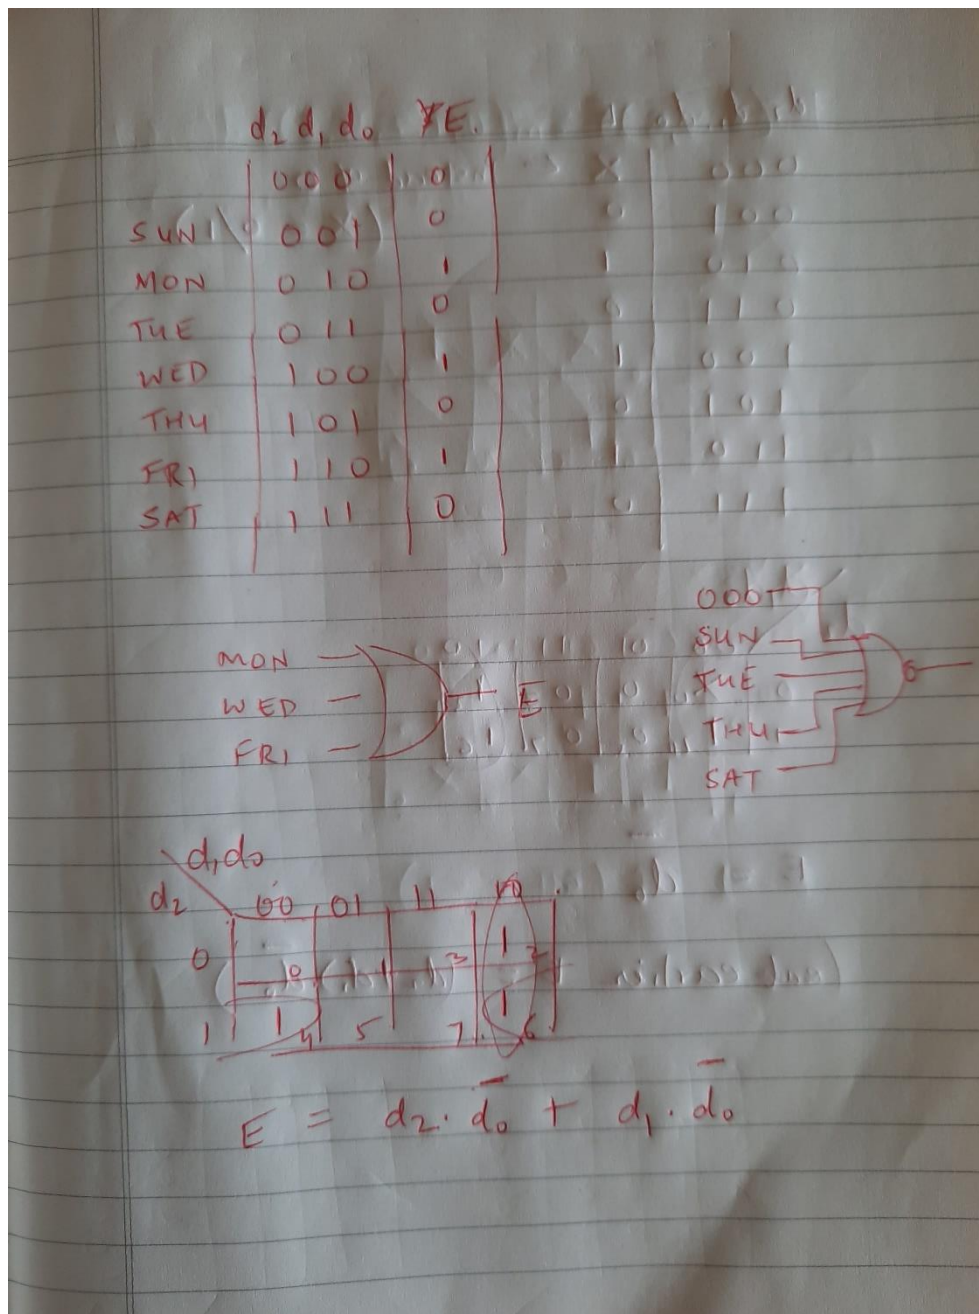 d₂ d₁ d₀ YE.
0 0 0 0
SUN 0 0 1 0
MON 0 1 0 1
TUE 0 1 1 0
WED 1 0 0 1
THU 1 0 1 0
FRI 1 1 0 1
SAT 1 1 1 0
000
MON SUN
WED E TUE
FRI THU
SAT
d₁d₀
d₂ 00 01 11 10
0 0 1 3 1 2
1 1 4 5 7 1 6
E = d₂. d̅₀ + d₁. d̅₀